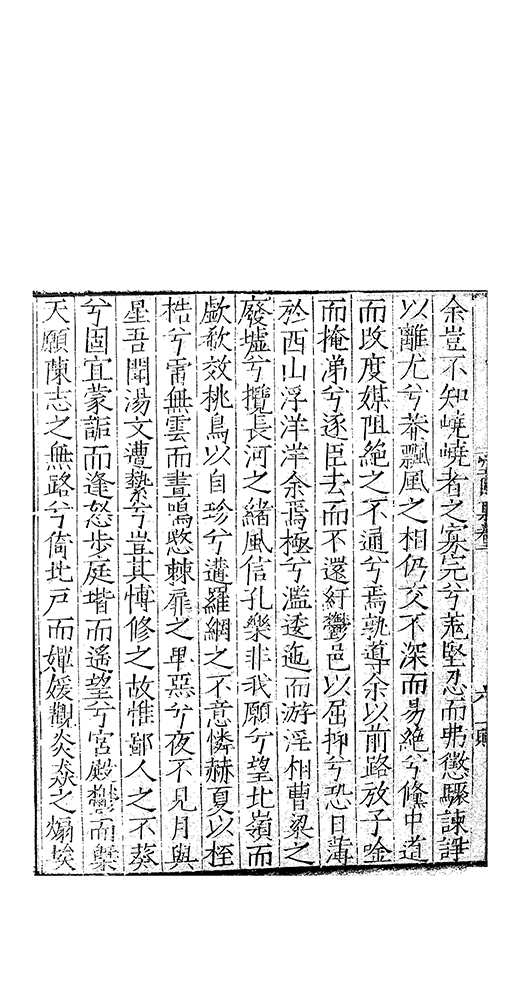 余豈不知嶢嶢者之寡完兮䓤堅忍而弗懲驟諫諍
以離尤兮莽飄風之相仍交不深而易絶兮倐中道
而改度媒阻絶之不通兮焉孰導余以前路放子唫
而掩涕兮逐臣去而不還紆鬱邑以屈抑兮恐日薄
於西山浮洋洋余焉極兮濫逶迤而游淫相曹梁之
廢墟兮攬長河之緒風信孔樂非我願兮望北嶺而
歔欷效桃鳥以自珍兮遘羅網之不意憐赫夏以桎
梏兮䨓無雲而晝鳴愍棘扉之畢惡兮夜不見月與
星吾聞湯文遭縶兮豈其愽修之故惟鄙人之不葵
兮固宜蒙詬而逢怒步庭堦而遙望兮宮殿鬱而槩
天願陳志之無路兮倚北戸而嬋媛觀炎焱之煽埃